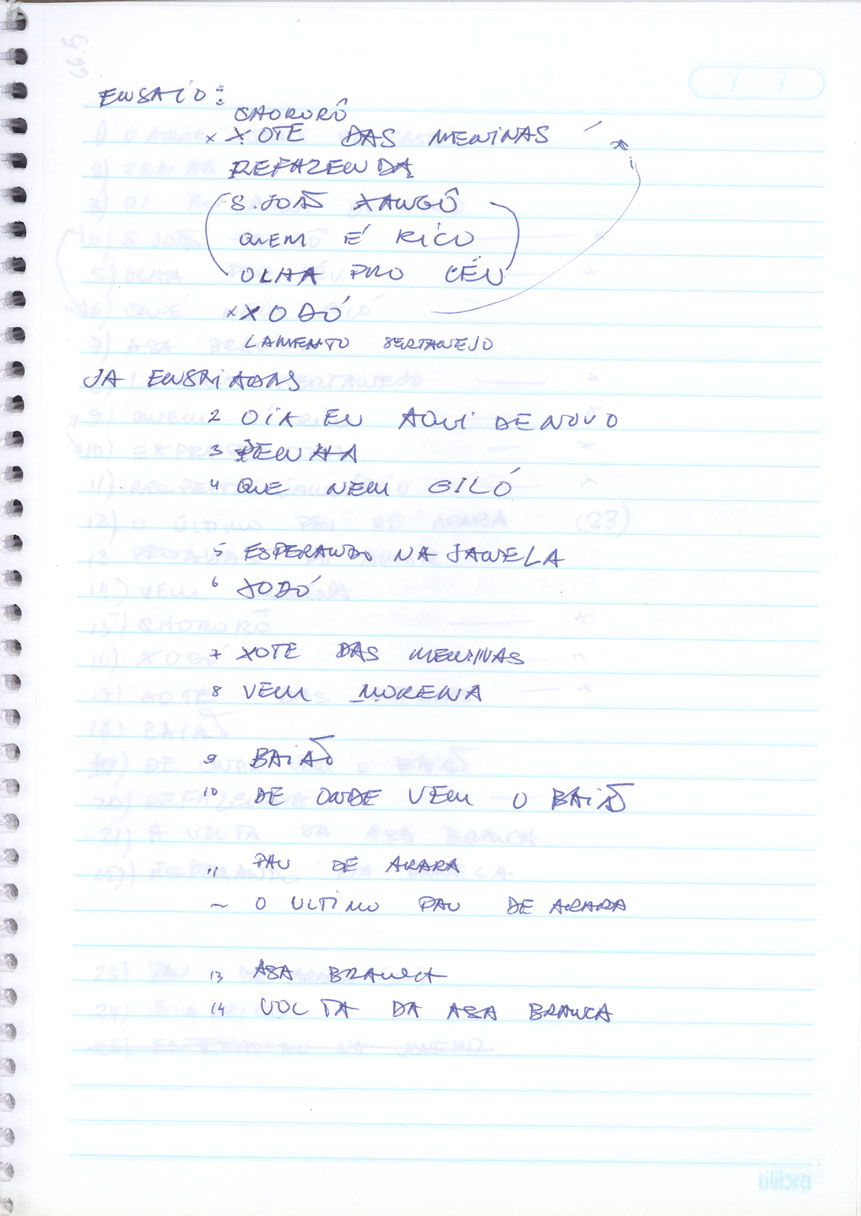 ENSAIO:
CHORORÔ
x XOTE DAS MENINAS
REFAZENDA
S.JOÃO XANGÔ
QUEM É RICO
OLHA PRO CÉU
x XODÓ
LAMENTO SERTANEJO
JA ENSAIADAS
2 OIA EU AQUI DE NOVO
3 PENHA
4 QUE NEM GILÓ
5 ESPERANDO NA JANELA
6 XODÓ
7 XOTE DAS MENINAS
8 VEM MORENA
9 BAIÃO
10 DE ONDE VEM O BAIÃO
11 PAU DE ARARA
~ O ULTIMO PAU DE ARARA
13 ASA BRANCA
14 VOLTA DA ASA BRANCA
tilibra